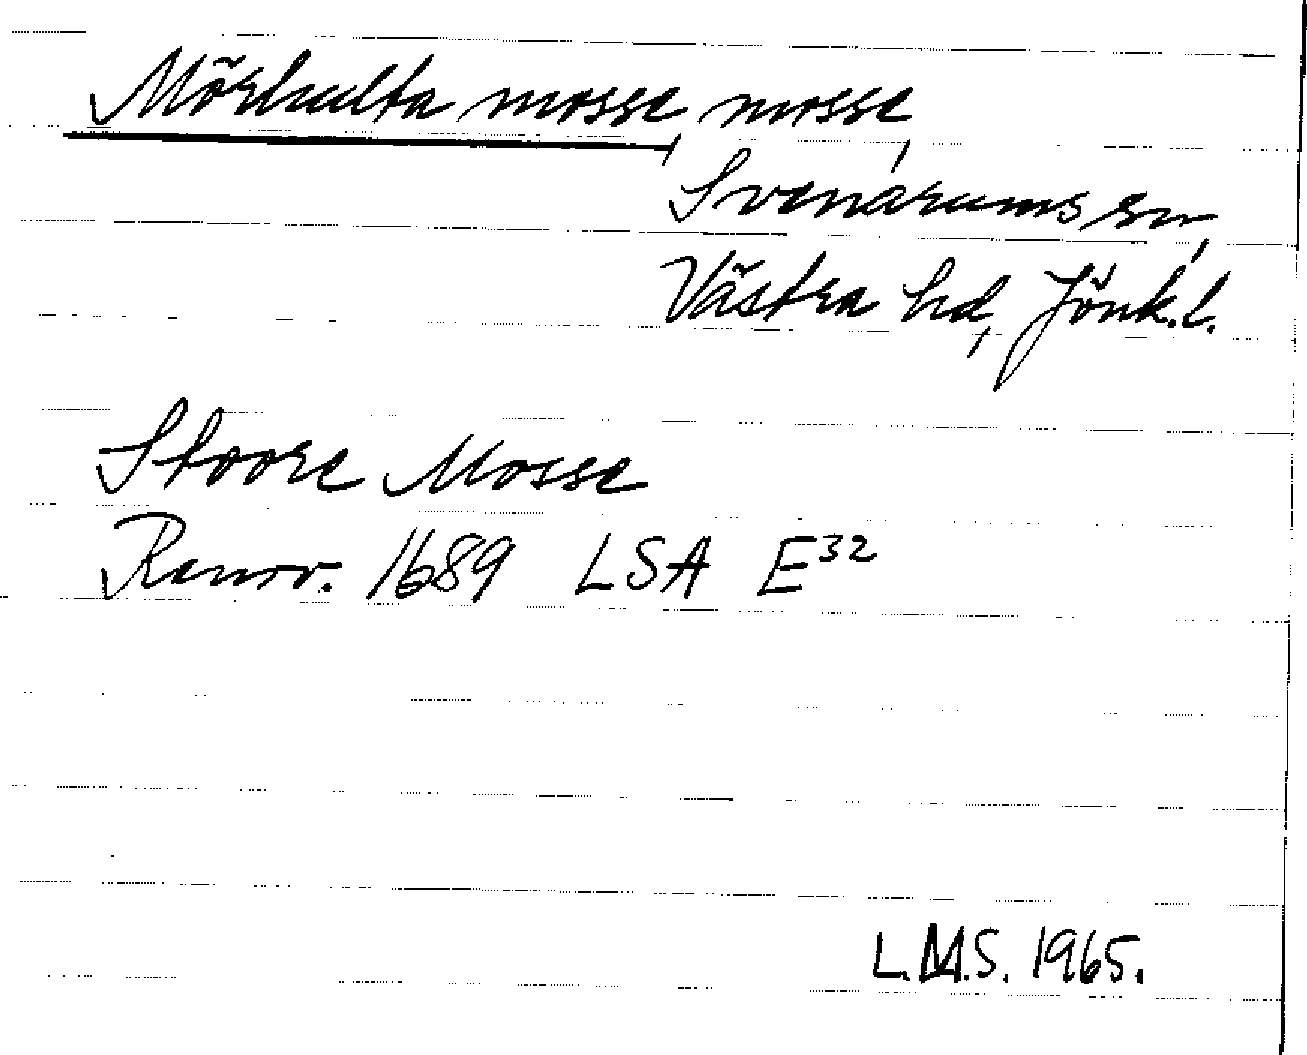 Mörhulta mosse, mosse,
Svenarums sn,
Västra hd, Jönk.l.
Stoore Mosse
Renov. 1689 LSA E³²
L.M.S. 1965.